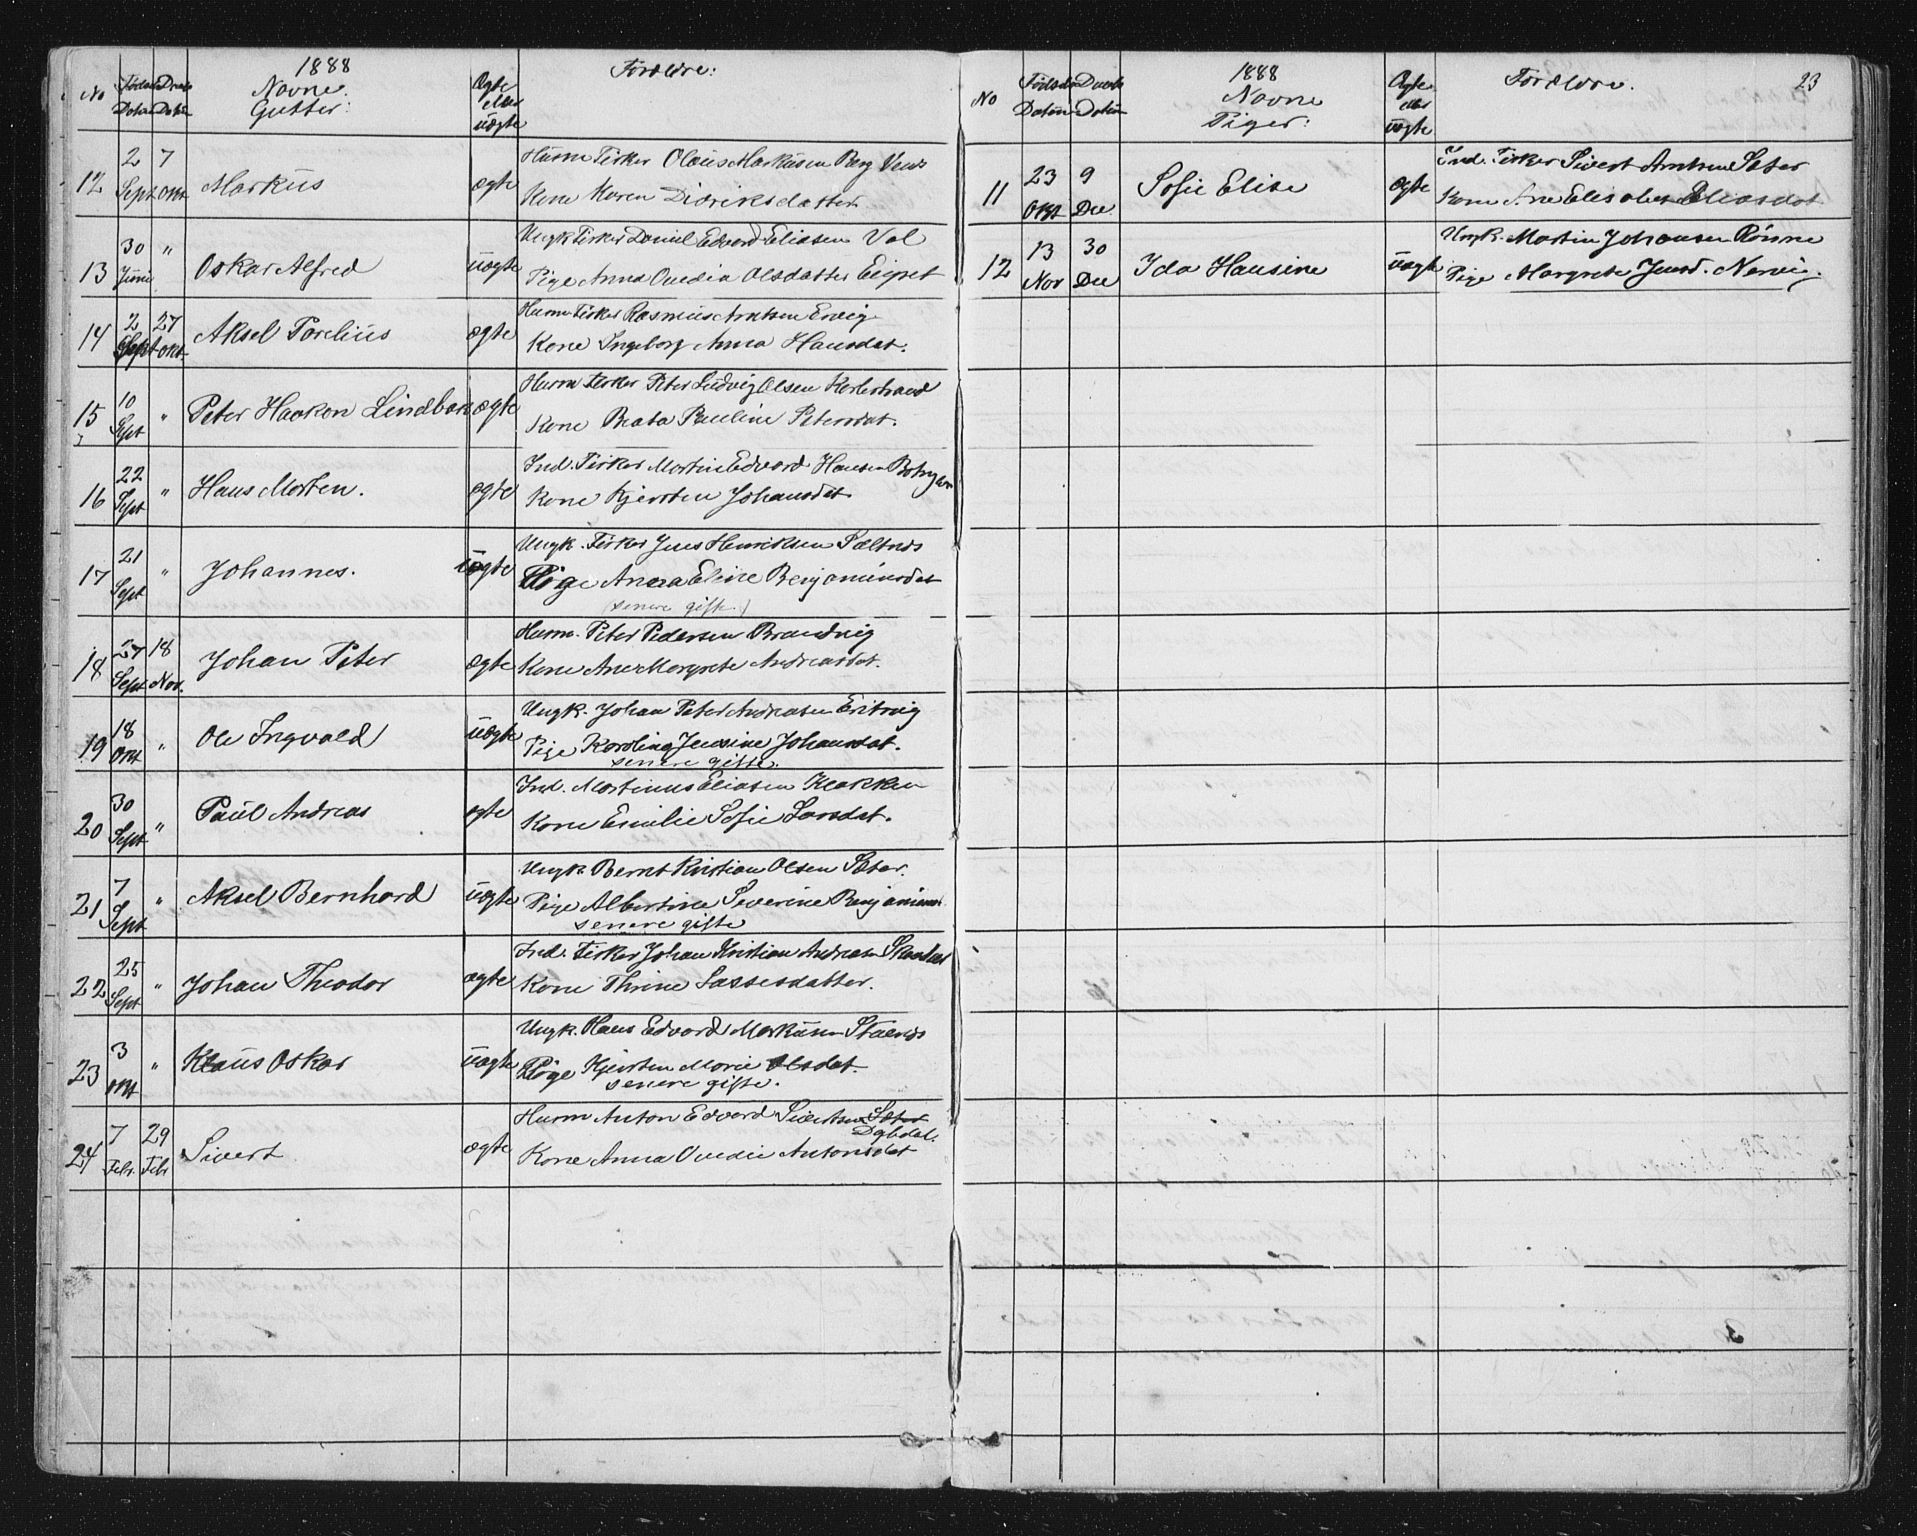 No Føds Daab 1888 Ægte Forældre:
Datum Datum Navne. eller
Gutter: uægte
12 2 Sept 7 Okt Markus ægte Huusm Fisker Olaus Markusen Berg
Kone Karen Didriksdatter
13 30 Juni " Oskar Alfred uægte Ungk Fisker Daniel Edvard Eliasen Val
Pige Anna Ovedia Olsdatter
14 2 Sept 27 Okt Aksel Torelius ægte Huusm Fisker Rasmus Arntsen Ervig
Kone Ingeborg Anna Hansdat.
15 10 Sept " Peter Haakon ægte Huusm Fisker Peter Ludvig Olsen
Kone Beata Pauline Petersdat.
16 22 Sept " Hans Morten. ægte Ind. Fisker Martin Edvard Hansen
Kone Kjersten Johansdat
17 21 Sept " Johannes. uægte Ungk. Fisker Jens Henriksen
Pige Anna Eline Benjaminsdat
(senere gifte.)
18 27 Sept 18 Nov. Johan Peter ægte Huusm. Peter Pedersen Brandvig
Kone Ane Margrete Andreasdat.
19 18 Okt " Ole Ingvald uægte Ungk. Johan Peter Andreasen
Pige Karoline Jensine Johansdat.
senere gifte.
20 30 Sept " Paul Andreas ægte Ind. Martinus Eliasen Klakken
Kone Emilie Sofie Larsdat.
21 7 Sept " Aksel Bernhard uægte Ungk Bernt Kristian Olsen Sæter.
Pige Albertine Severine Benjamins
senere gifte
22 25 Sept " Johan Theodor ægte Ind. Fisker Johan Kristian Andreasen
Kone Thrine Lassesdatter.
23 3 Okt " Klaus Oskar uægte Ungk. Hans Edvard Markusen
Pige Kjersten Marie Olsdat.
senere gifte.
24 7 Febr. 29 Febr Sivert ægte Huusm Anton Edvard Sivertsen Sæter
Dybdal.
Kone Anna Ovedie Antonsdat
23
No Føds Daab 1888 Ægte Forældre.
Datum Datum Navne eller
Piger: uægte
11 23 Okt 9 De Sofie Elise ægte Ind. Fisker Sivert Arntsen Sæter
Kone Ane Elisabet Eliasdat
12 13 Nov 30 De Ida Hansine uægte Ungk. Martin Johansen Rønne
Pige Margrete Jensd. Nervig.